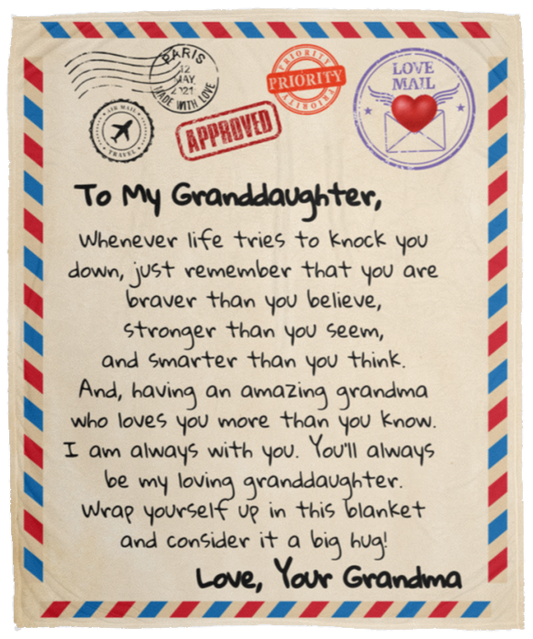 PARIS
12
MAY
2021
MADE WITH LOVE
AIR MAIL
TRAVEL
APPROVED
PRIORITY
PRIORITY
PRIORITY
LOVE
MAIL
To My Granddaughter,
Whenever life tries to knock you
down, just remember that you are
braver than you believe,
stronger than you seem,
and smarter than you think.
And, having an amazing grandma
who loves you more than you know.
I am always with you. You'll always
be my loving granddaughter.
Wrap yourself up in this blanket
and consider it a big hug!
Love, Your Grandma